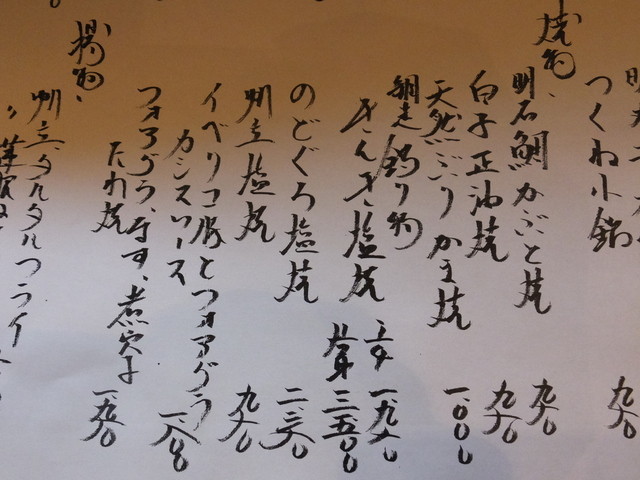 つくね小鍋 九八〇
焼物、
明石鯛かぶと焼 九八〇
白子正油焼 九八〇
天然ぶりかま焼 一、〇〇〇
網走釣り物
きんき塩焼 一、九八〇
三、五〇〇
のどぐろ塩焼 二、二八〇
帆立塩焼 九八〇
イベリコ豚とフォアグラ
カシスソース 一、八〇〇
フォアグラ、なす、煮穴子
たれ焼 一、九八〇
揚物、
帆立タルタルフライ